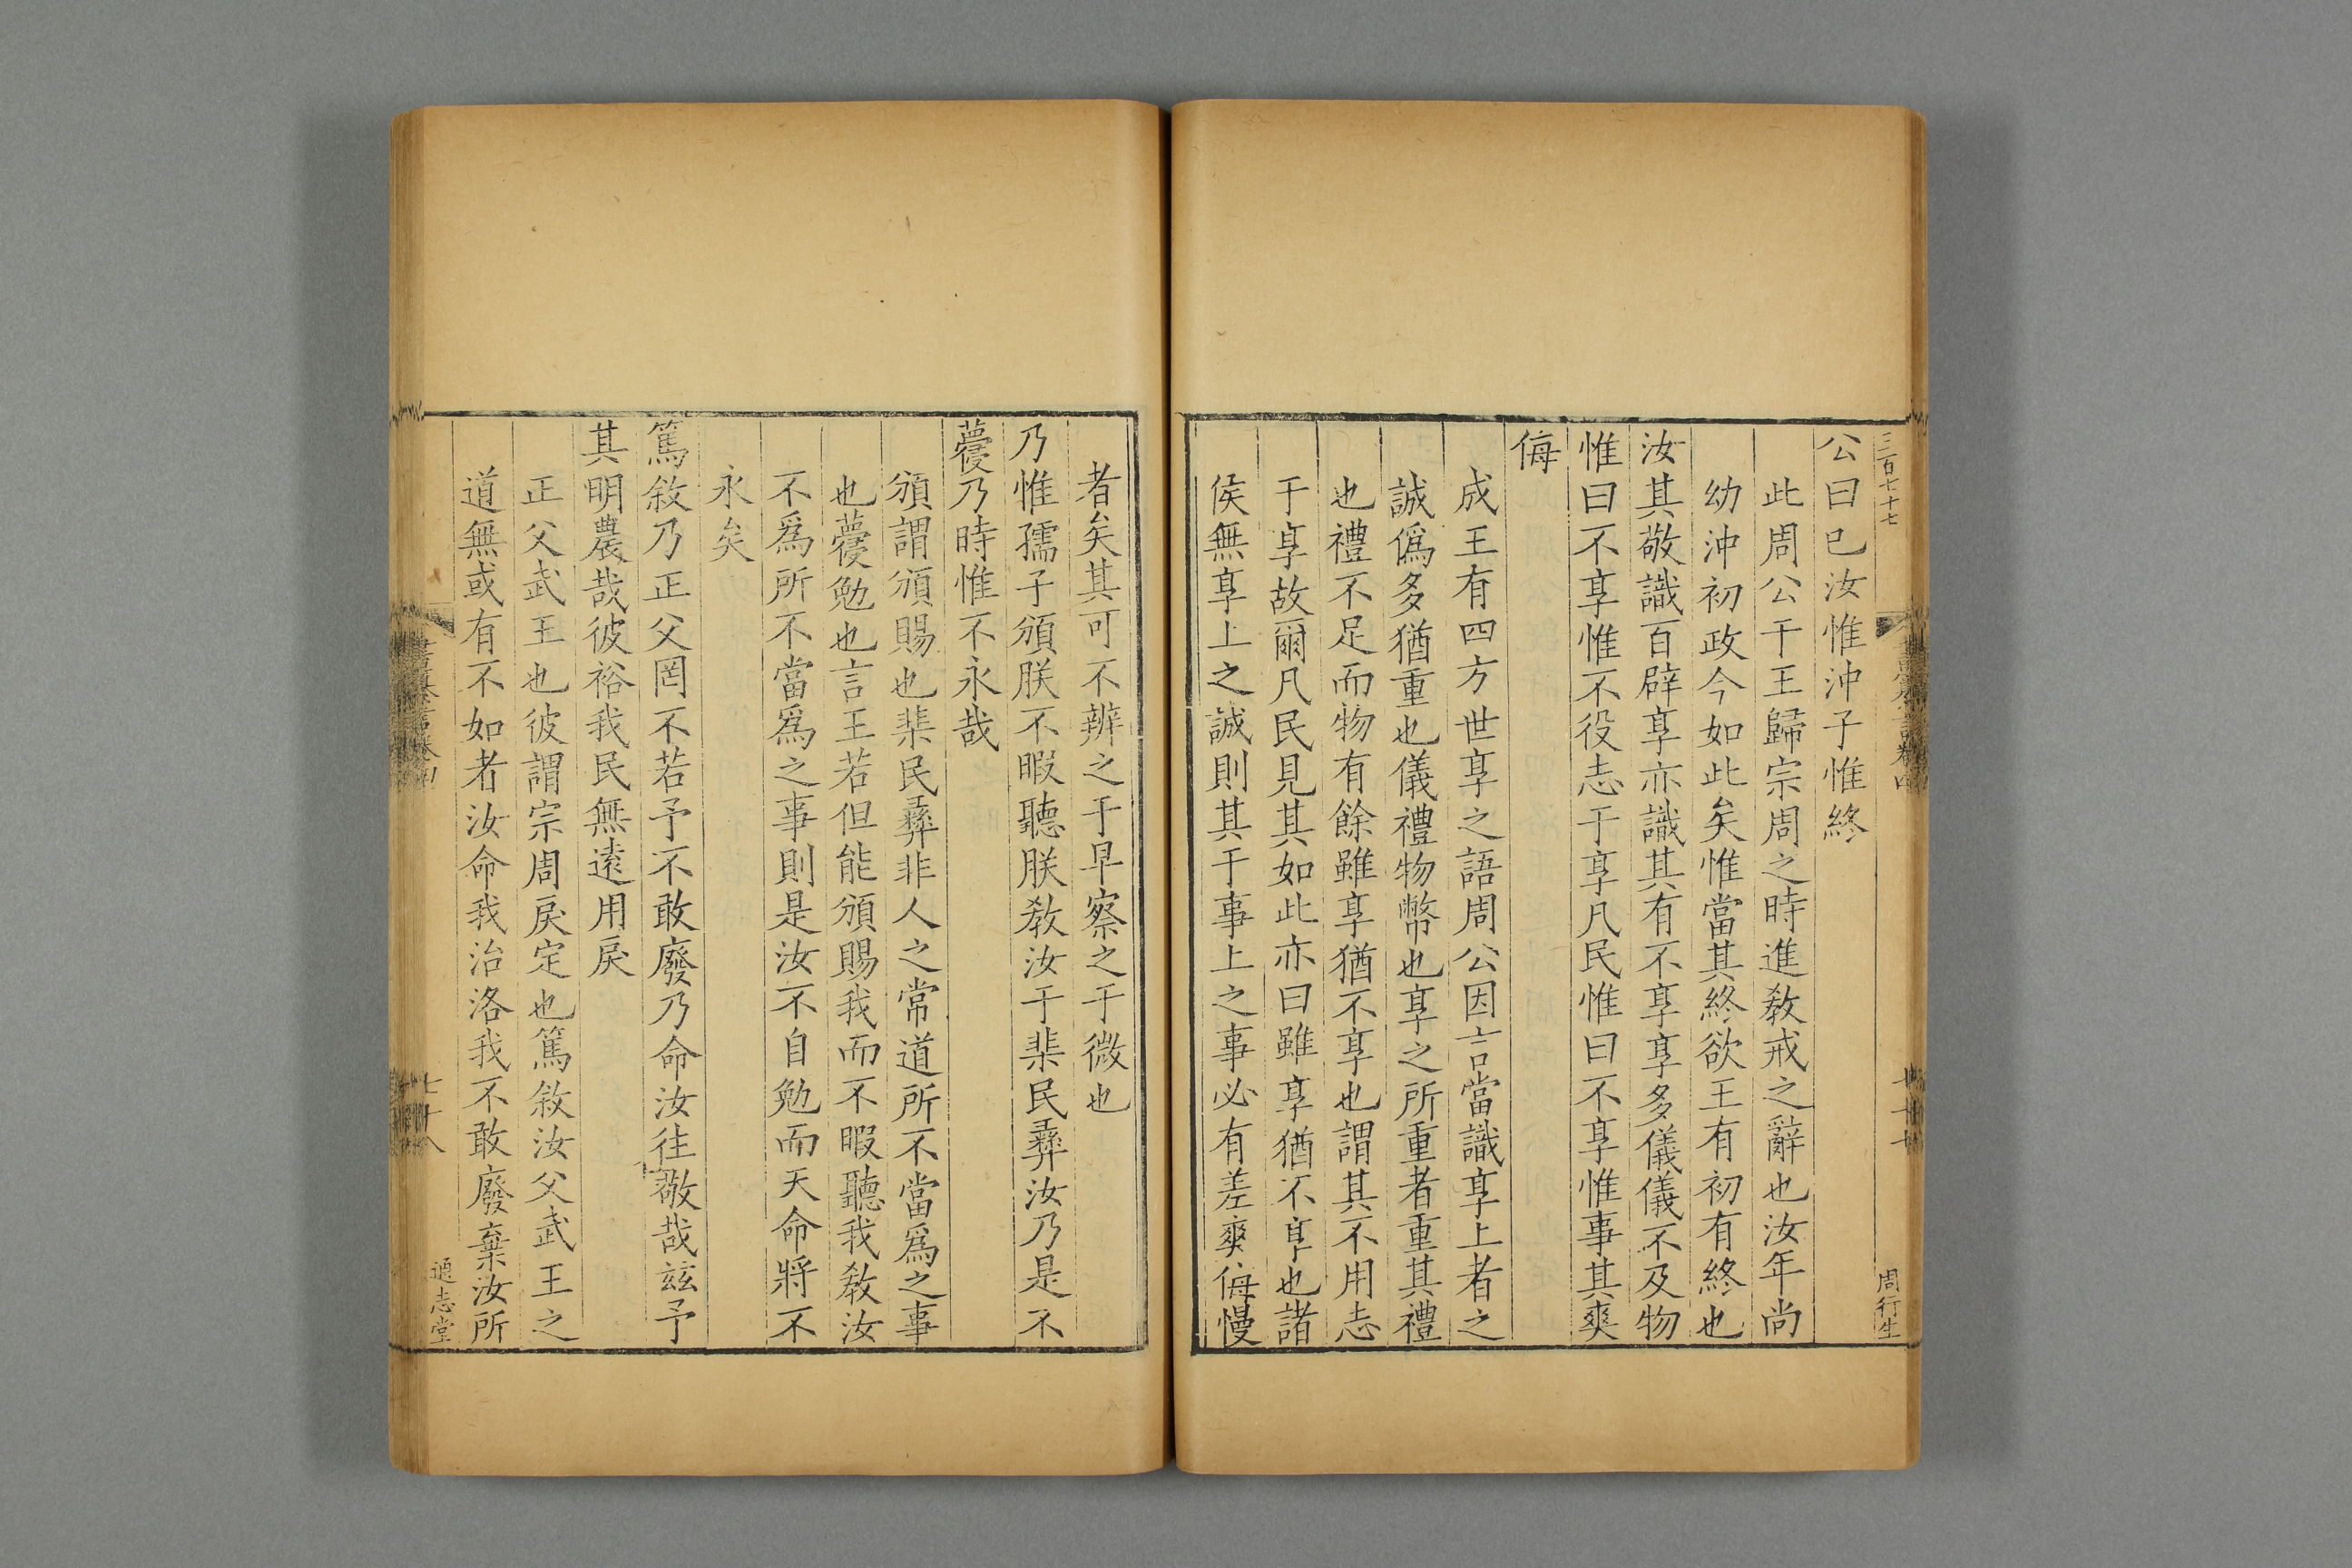 三百七十七
公曰已汝惟沖子惟終
此周公于王歸宗周之時進敎戒之辭也汝年尚
幼沖初政今如此矣惟當其終欲王有初有終也
汝其敬識百辟享亦識其有不享享多儀儀不及物
惟曰不享惟不役志于享凡民惟曰不享惟事其爽
侮
成王有四方世享之語周公因言當識享上者之
誠僞多猶重也儀禮物幣也享之所重者重其禮
也禮不足而物有餘雖享猶不享也謂其不用志
于享故爾凡民見其如此亦曰雖享猶不享也諸
侯無享上之誠則其于事上之事必有差爽侮慢
周行生
者矣其可不辨之于早察之于微也
乃惟孺子頒朕不暇聽朕敎汝于棐民彝汝乃是不
蘉乃時惟不永哉
頒謂頒賜也棐民彝非人之常道所不當爲之事
也蘉勉也言王若但能頒賜我而不暇聽我敎汝
不爲所不當爲之事則是汝不自勉而天命將不
永矣
篤敘乃正父罔不若予不敢廢乃命汝往敬哉兹予
其明農哉彼裕我民無遠用戾
正父武王也彼謂宗周戾定也篤敘汝父武王之
道無或有不如者汝命我治洛我不敢廢棄汝所
通志堂